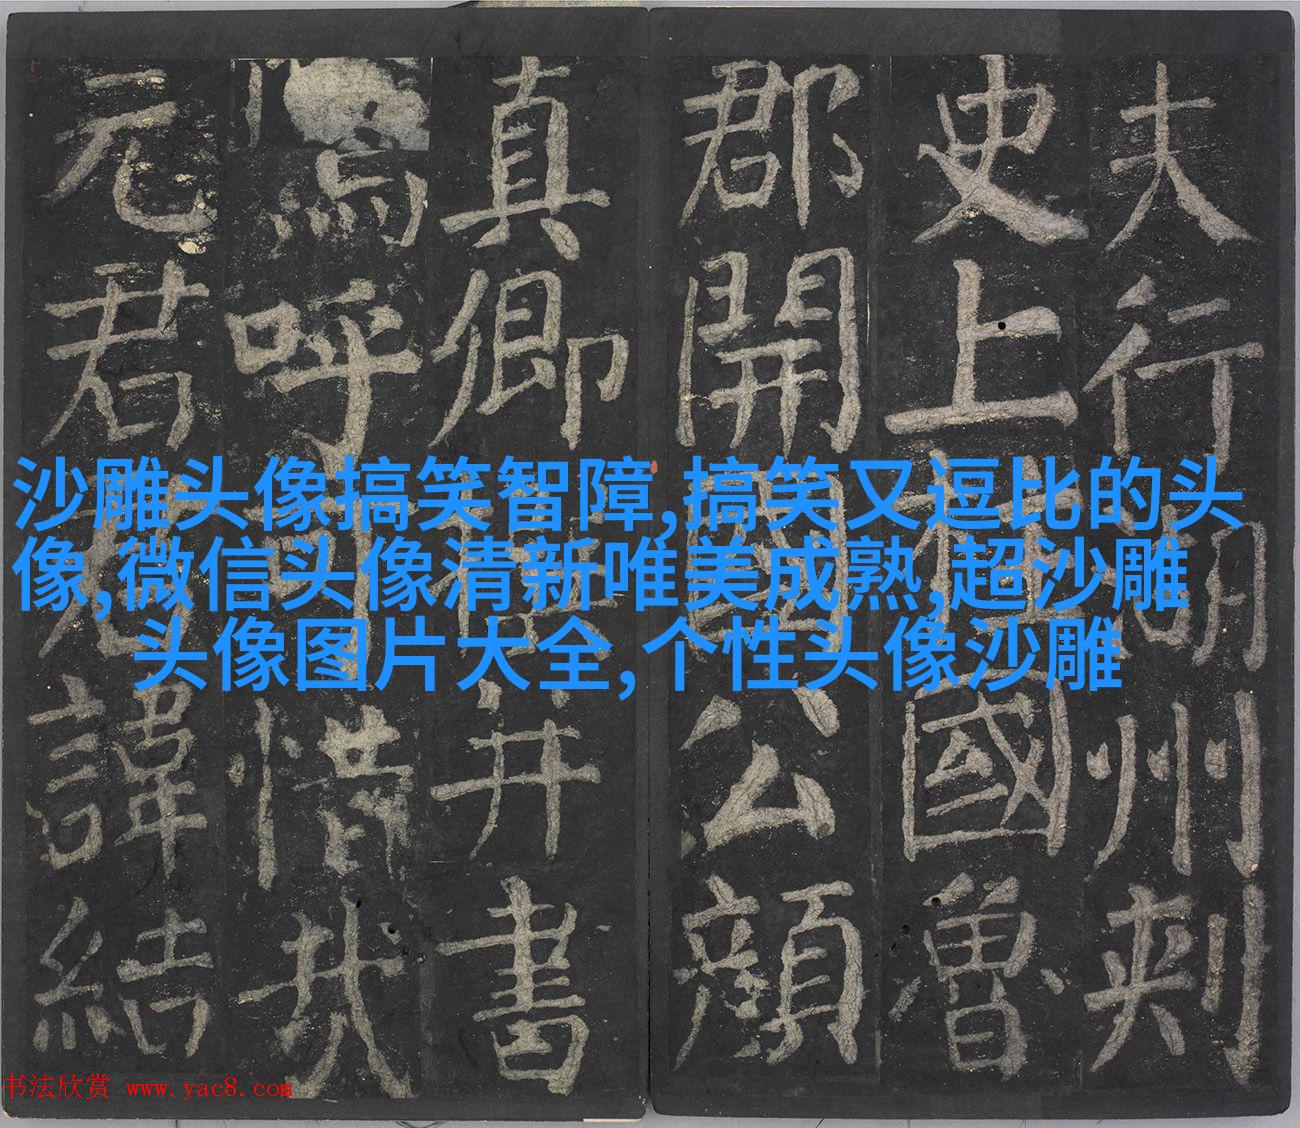 夫行湖州刺
史上柱國魯
郡開國公顏
真卿撰并書
嗚呼可惜哉
元君諱結
沙雕头像搞笑智障,搞笑又逗比的头
像,微信头像清新唯美成熟,超沙雕
头像图片大全,个性头像沙雕
书法欣赏 www.yac8.com